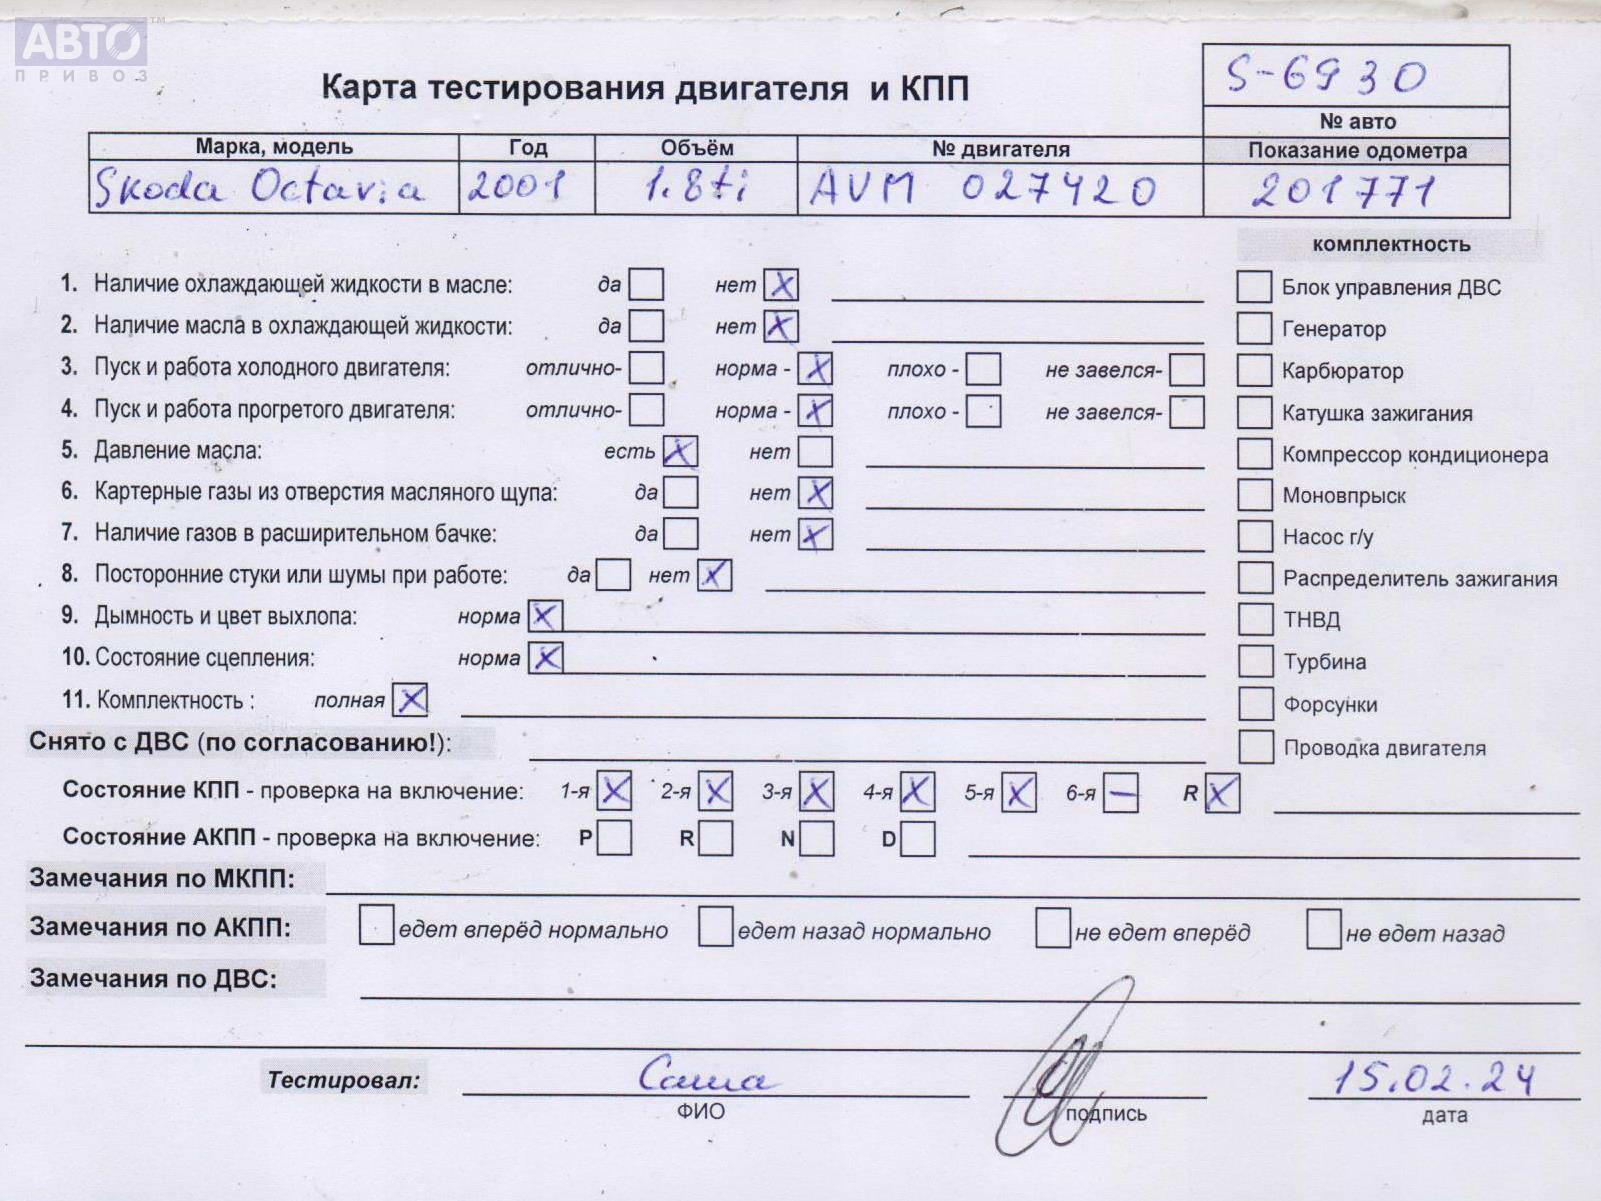 АВТО™
ПРИВОЗ
Карта тестирования двигателя и КПП
S-6930
№ авто
Марка, модель Год Объём № двигателя Показание одометра
Skoda Octavia 2001 1.8ti AVM 027420 201771
комплектность
1. Наличие охлаждающей жидкости в масле: да нет X
Блок управления ДВС
2. Наличие масла в охлаждающей жидкости: да нет X
Генератор
3. Пуск и работа холодного двигателя: отлично- норма - X плохо - не завелся-
Карбюратор
4. Пуск и работа прогретого двигателя: отлично- норма - X плохо - не завелся-
Катушка зажигания
5. Давление масла: есть X нет
Компрессор кондиционера
6. Картерные газы из отверстия масляного щупа: да нет X
Моновпрыск
7. Наличие газов в расширительном бачке: да нет X
Насос г/у
8. Посторонние стуки или шумы при работе: да нет X
Распределитель зажигания
9. Дымность и цвет выхлопа: норма X
ТНВД
10. Состояние сцепления: норма X
Турбина
11. Комплектность : полная X
Форсунки
Снято с ДВС (по согласованию!):
Проводка двигателя
Состояние КПП - проверка на включение: 1-я X 2-я X 3-я X 4-я X 5-я X 6-я — R X
Состояние АКПП - проверка на включение: P R N D
Замечания по МКПП:
Замечания по АКПП: едет вперёд нормально едет назад нормально не едет вперёд не едет назад
Замечания по ДВС:
Тестировал: Саша 15.02.24
ФИО подпись дата